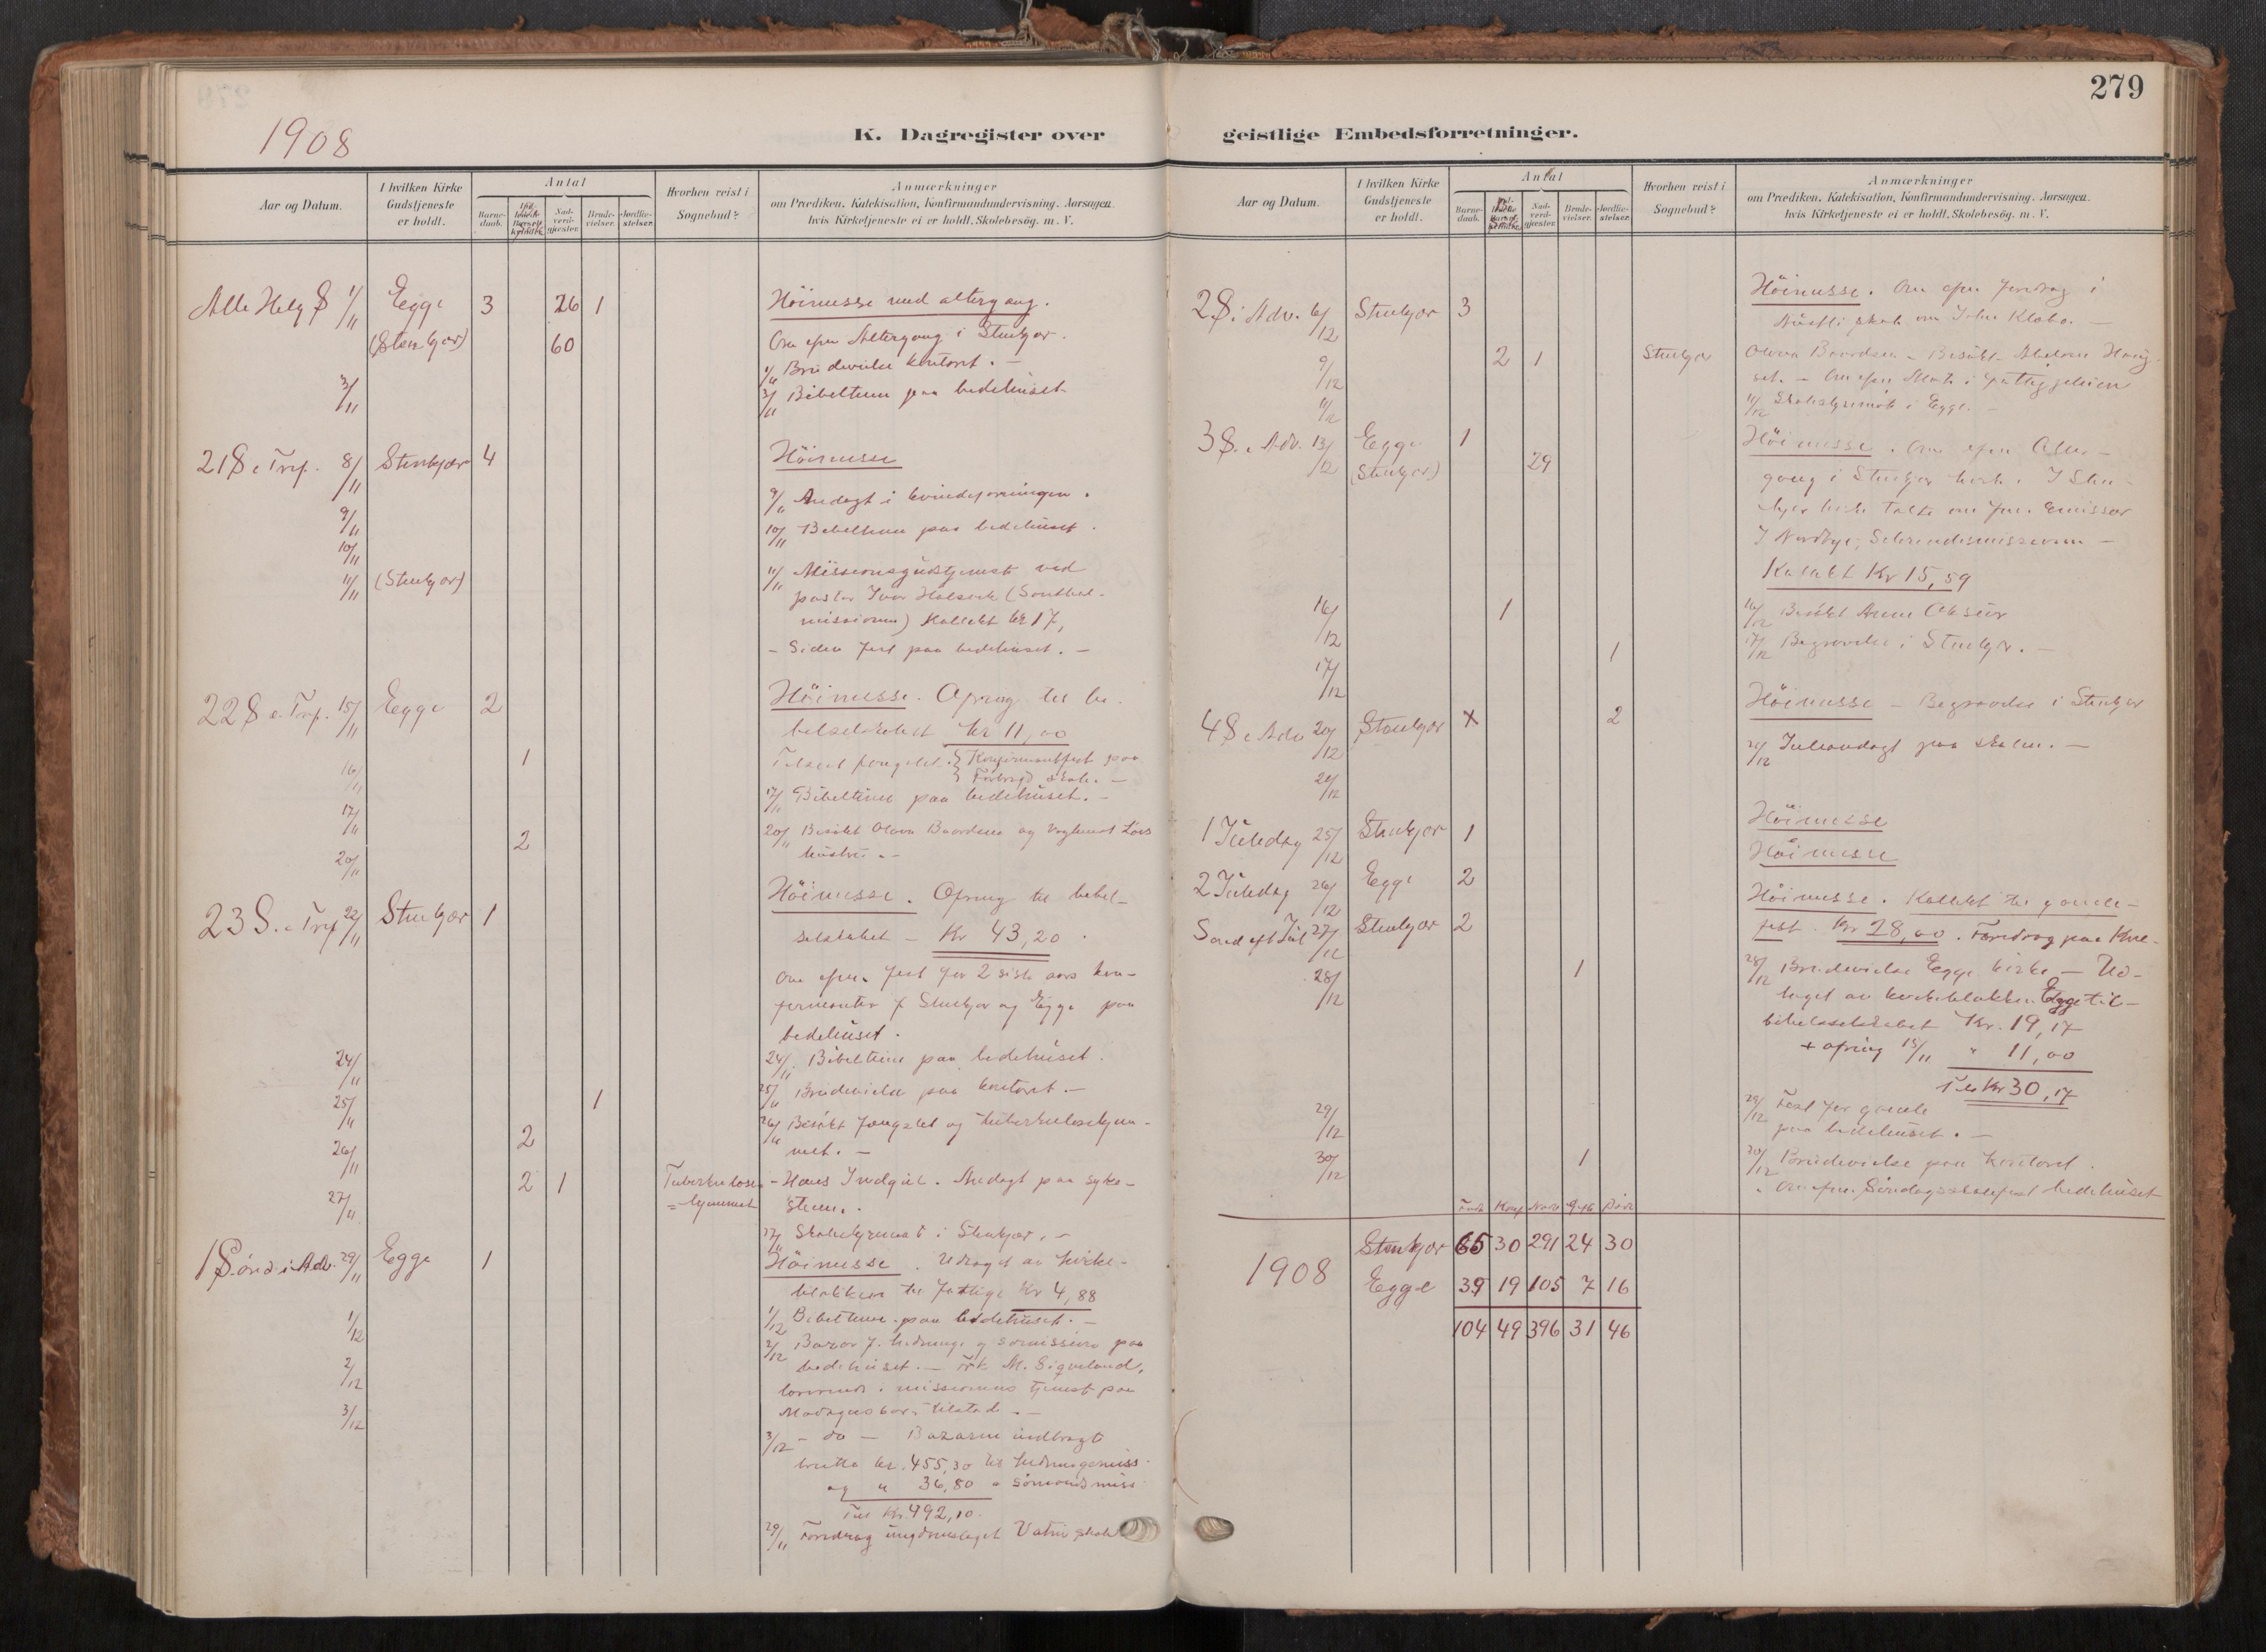 279
1908
K. Dagregister over geistlige Embedsforretninger.
Aar og Datum.
I hvilken Kirke Gudstjeneste er holdt.
Antal
Barne-daab.
Nad-verd-gjester.
Brude-vielser.
Jordfæ-stelser.
Hvorhen reist i Sognebud?
Anmærkninger
om Prædiken, Katekisation, Konfirmandundervisning. Aarsagen,
hvis Kirketjeneste ei er holdt, Skolebesög. m. V.
Alle Helg S 1/11 Egge 3 26 1 Höimesse med altergang.
(Stenkjær) 60 Om efm Altergang i Stenkjær.
1/11 Brudevielse kontoret. —
3/11 3/11 Bibeltime paa bedehuset
21 S e Tref. 8/11 Stenkjær 4 Höimesse
9/11 9/11 Andagt i kvindeforeningen.
10/11 10/11 Bibeltime paa bedehuset.
11/11 (Stenkjær) 11/11 Missionsgudstjeneste ved
pastor Ivar (Santhal-
missionen) Kollekt kr 17,
- Siden fest paa bedehuset. —
22 S e. Tref. 15/11 Egge 2 Höimesse. Ofring til bi-
belselskabet kr 11,00
16/11 1 Konfirmantfest paa
skole. —
17/11 17/11 Bibeltime paa bedehuset. —
20/11 2 20/11 Besökt Olava Baardsen og
hustru. —
23 S. e Tref 22/11 Stenkjær 1 Höimesse. Ofring til bibel-
selskabet — Kr 43,20.
Om efm. fest for 2 siste aars kon-
firmanter f Stenkjær og Egge paa
bedehuset.
24/11 24/11 Bibeltime paa bedehuset.
25/11 1 25/11 Brudevielse paa kontoret. —
26/11 2 26/11 Besökt fængslet og tuberkulosehjem-
met. —
27/11 2 1 Tuberkulose-
=hjemmet
- Hans . Andagt paa syke-
stuen.
27/11 i Stenkjær. —
1 Sönd i Adv. 29/11 Egge 1 Höimesse. Udtaget av kirke-
blokken til fattige Kr 4,88
1/12 1/12 Bibeltime paa bedehuset. —
2/12 2/12 Bazar f. hedninge og sömission paa
bedehuset. — Frk. M. Sigveland,
lærerinde i missionens tjeneste paa
Madagaskar, tilstede. —
3/12 3/12 — do — Bazaren indbragte
brutto kr. 455,30 til hedningemiss.
og " 36,80 " sömandsmiss
Til Kr. 492,10.
29/11 Foredrag ungdomslaget skole
Aar og Datum.
I hvilken Kirke Gudstjeneste er holdt.
Antal
Barne-daab.
Nad-verd-gjester.
Brude-vielser.
Jordfæ-stelser.
Hvorhen reist i Sognebud?
Anmærkninger
om Prædiken, Katekisation, Konfirmandundervisning. Aarsagen,
hvis Kirketjeneste ei er holdt, Skolebesög. m. V.
2 S i Adv. 6/12 Stenkjær 3 Höimesse. Om efm foredrag i
skole om
9/12 2 1 Stenkjær Olava Baardsen — Besökt
set. — Om efm Möte i
11/12 11/12 i Egge. —
3 S. i Adv. 13/12 Egge 1 Höimesse. Om efm Alter-
(Stenkjær) 29 gang i Stenkjær kirke. I Sten-
kjær kirke talte om fm. Emissær
J Nordbye,
Kollekt Kr 15,59
16/12 1 16/12 Besökt Anne
17/12 1 17/12 Begravelse i Stenkjær. —
4 S e Adv 20/12 Stenkjær X 2 Höimesse — Begravelse i Stenkjær
21/12 21/12 Juleandagt paa skolen. —
1 Juledag 25/12 Stenkjær 1 Höimesse
2 Juledag 26/12 Egge 2 Höimesse
Sönd eft Jul 27/12 Stenkjær 2 Höimesse. Kollekt til gamle-
fest. Kr 28,00. Foredrag paa
28/12 1 28/12 Brudevielse Egge kirke — Ud-
taget av kirkeblokken Egge til
bibelselskabet Kr. 19,17
+ ofring 15/11 " 11,00
Til Kr 30,17
29/12 29/12 Fest for gamle
paa bedehuset. —
30/12 1 30/12 Brudevielse paa kontoret.
" Om efm. Söndagsskolefest bedehuset
Född Konf Nadv Gifte Döde
1908 Stenkjær 65 30 291 24 30
Egge 39 19 105 7 16
104 49 396 31 46